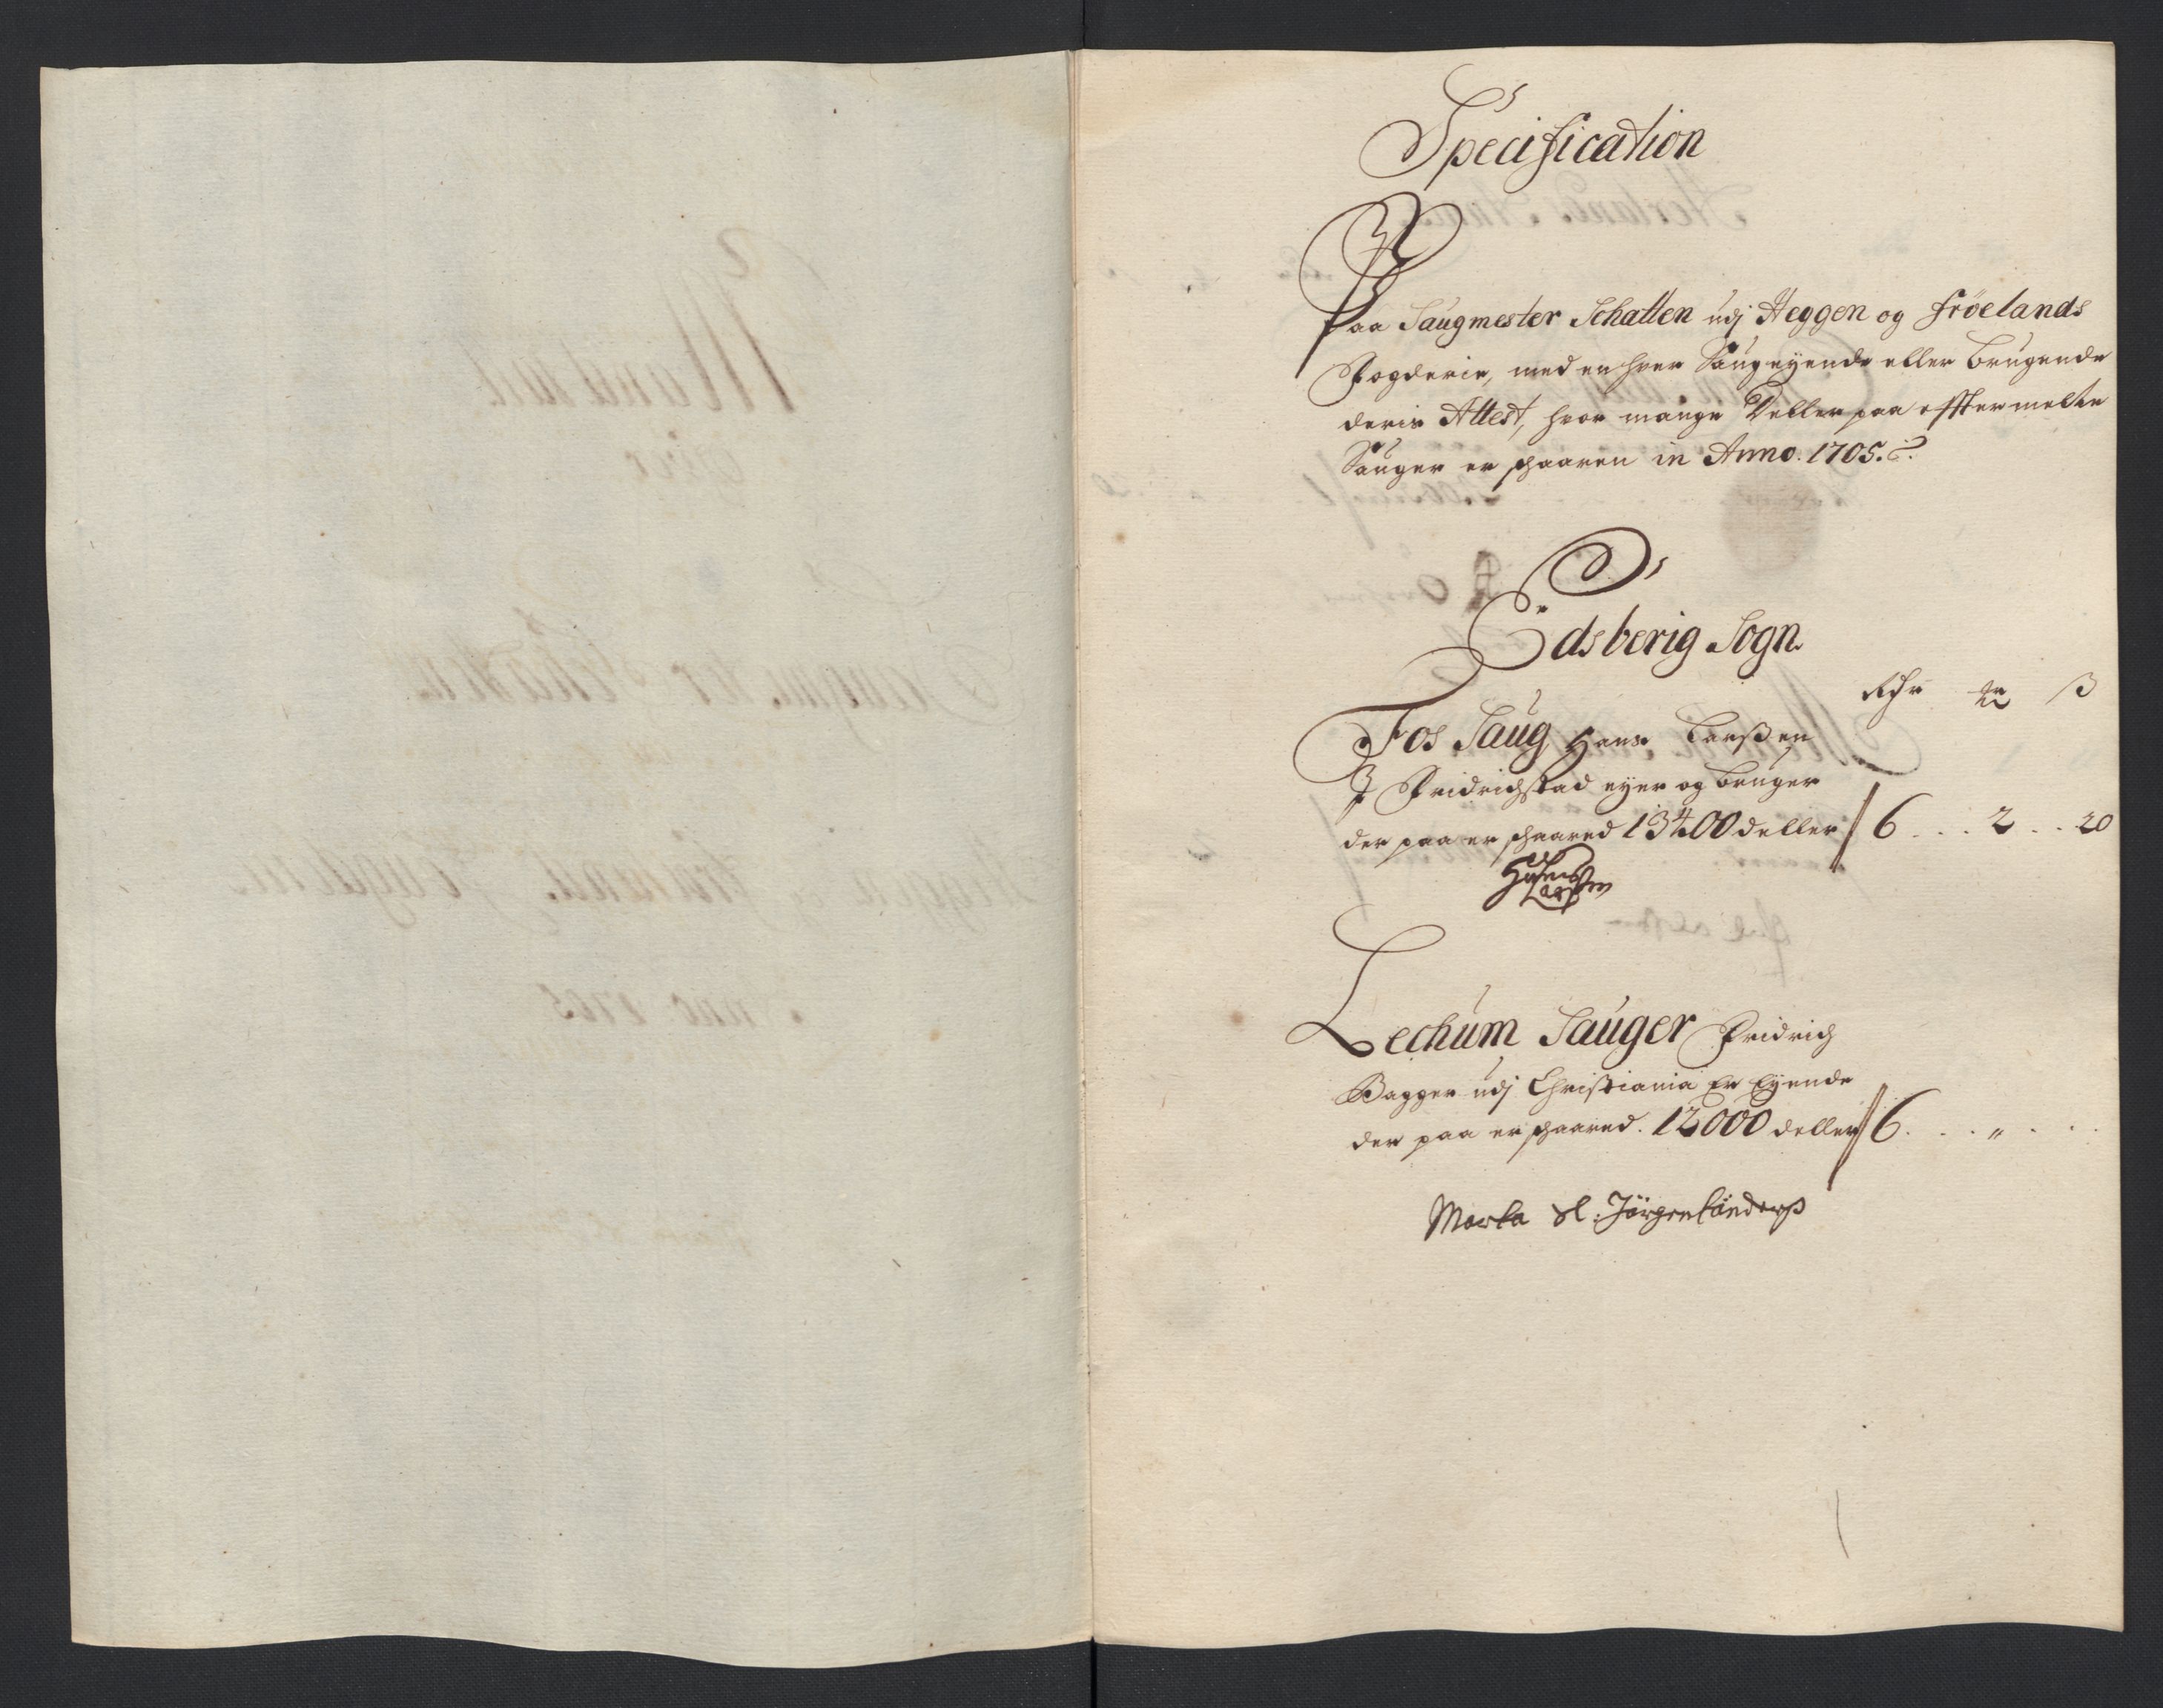 Specification
Paa Saugmester Schatten udj Heggen og Fröelands
Fogderie, med en hver Saugeyende eller Brugende
deris Attest, hvor mange Deller paa efftermelte
Sauger er schaaren in Anno. 1705.
Edsberig Sogn.
Rdr ß
Fos Saug Hans Larßen
J Fridrichstad eyer og bruger
der paa er schaared 13400 deller 6 . . . 2 . . 20
Hans Larssen
Lechum Sauger Fridrich
Bagger udj Christiania Er Eyende
der paa er schaared. 12000 deller 6 . . . „ . . .
Marta Sl: Jörgen